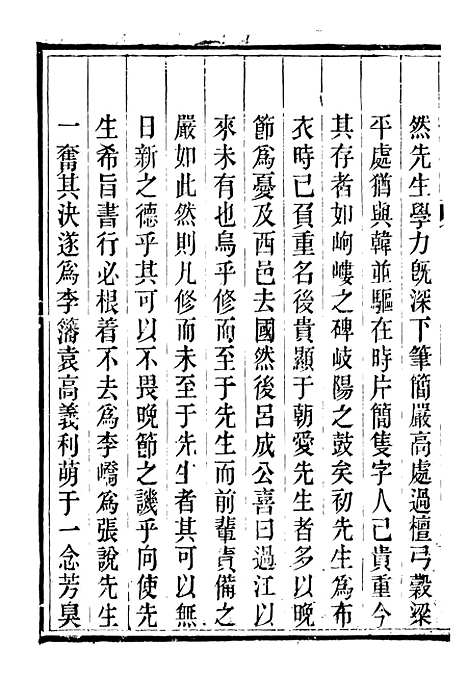 然先生學力旣深下筆簡嚴高處過檀弓穀梁
平處猶與韓並驅在時片簡隻字人已貴重今
其存者如岣嶁之碑岐陽之鼓矣初先生爲布
衣時已負重名後貴顯于朝愛先生者多以晚
節爲憂及西邑去國然後呂成公喜曰過江以
來未有也烏乎修而至于先生而前輩責備之
嚴如此然則凡修而未至于先生者其可以無
日新之德乎其可以不畏晚節之譏乎向使先
生希旨書行必根着不去爲李嶠爲張說先生
一奮其決遂爲李藩袁高義利萌于一念芳臭